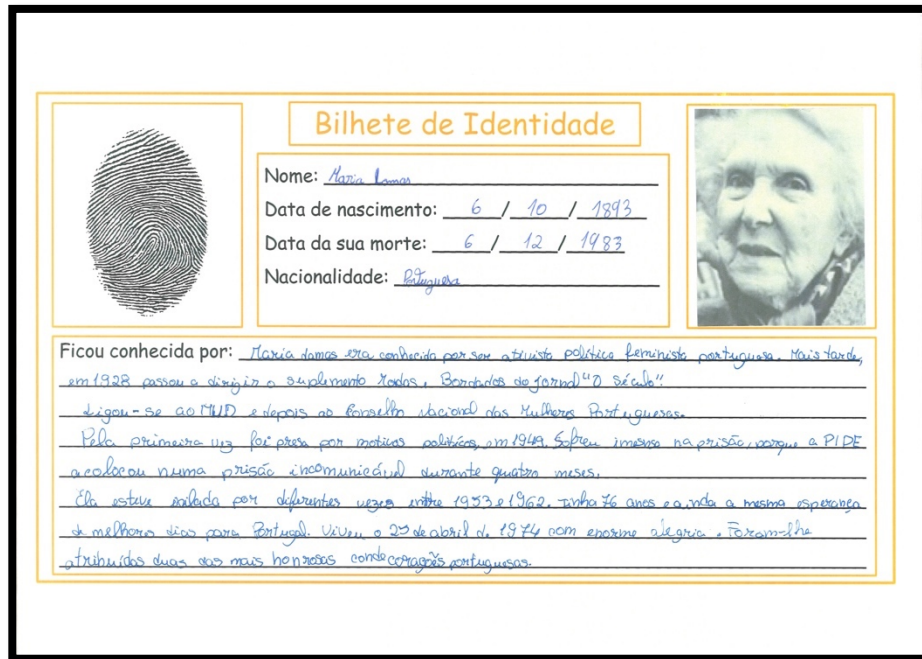 Bilhete de Identidade
Nome: Maria Lamas
Data de nascimento: 6 / 10 / 1893
Data da sua morte: 6 / 12 / 1983
Nacionalidade: Portuguesa
Ficou conhecida por: Maria Lamas era conhecida por ser ativista política feminista portuguesa. Mais tarde,
em 1928 passou a dirigir o suplemento Modas, Bordados do jornal "O Século".
Ligou-se ao MUD e depois ao Conselho Nacional das Mulheres Portuguesas.
Pela primeira vez foi presa por motivos políticos, em 1949. Sofreu imenso na prisão, porque a PIDE
a colocou numa prisão incomunicável durante quatro meses.
Ela esteve exilada por diferentes vezes entre 1953 e 1962. Tinha 76 anos e ainda a mesma esperança
de melhores dias para Portugal. Viveu o 25 de abril de 1974 com enorme alegria. Foram-lhe
atribuídas duas das mais honrosas condecorações portuguesas.